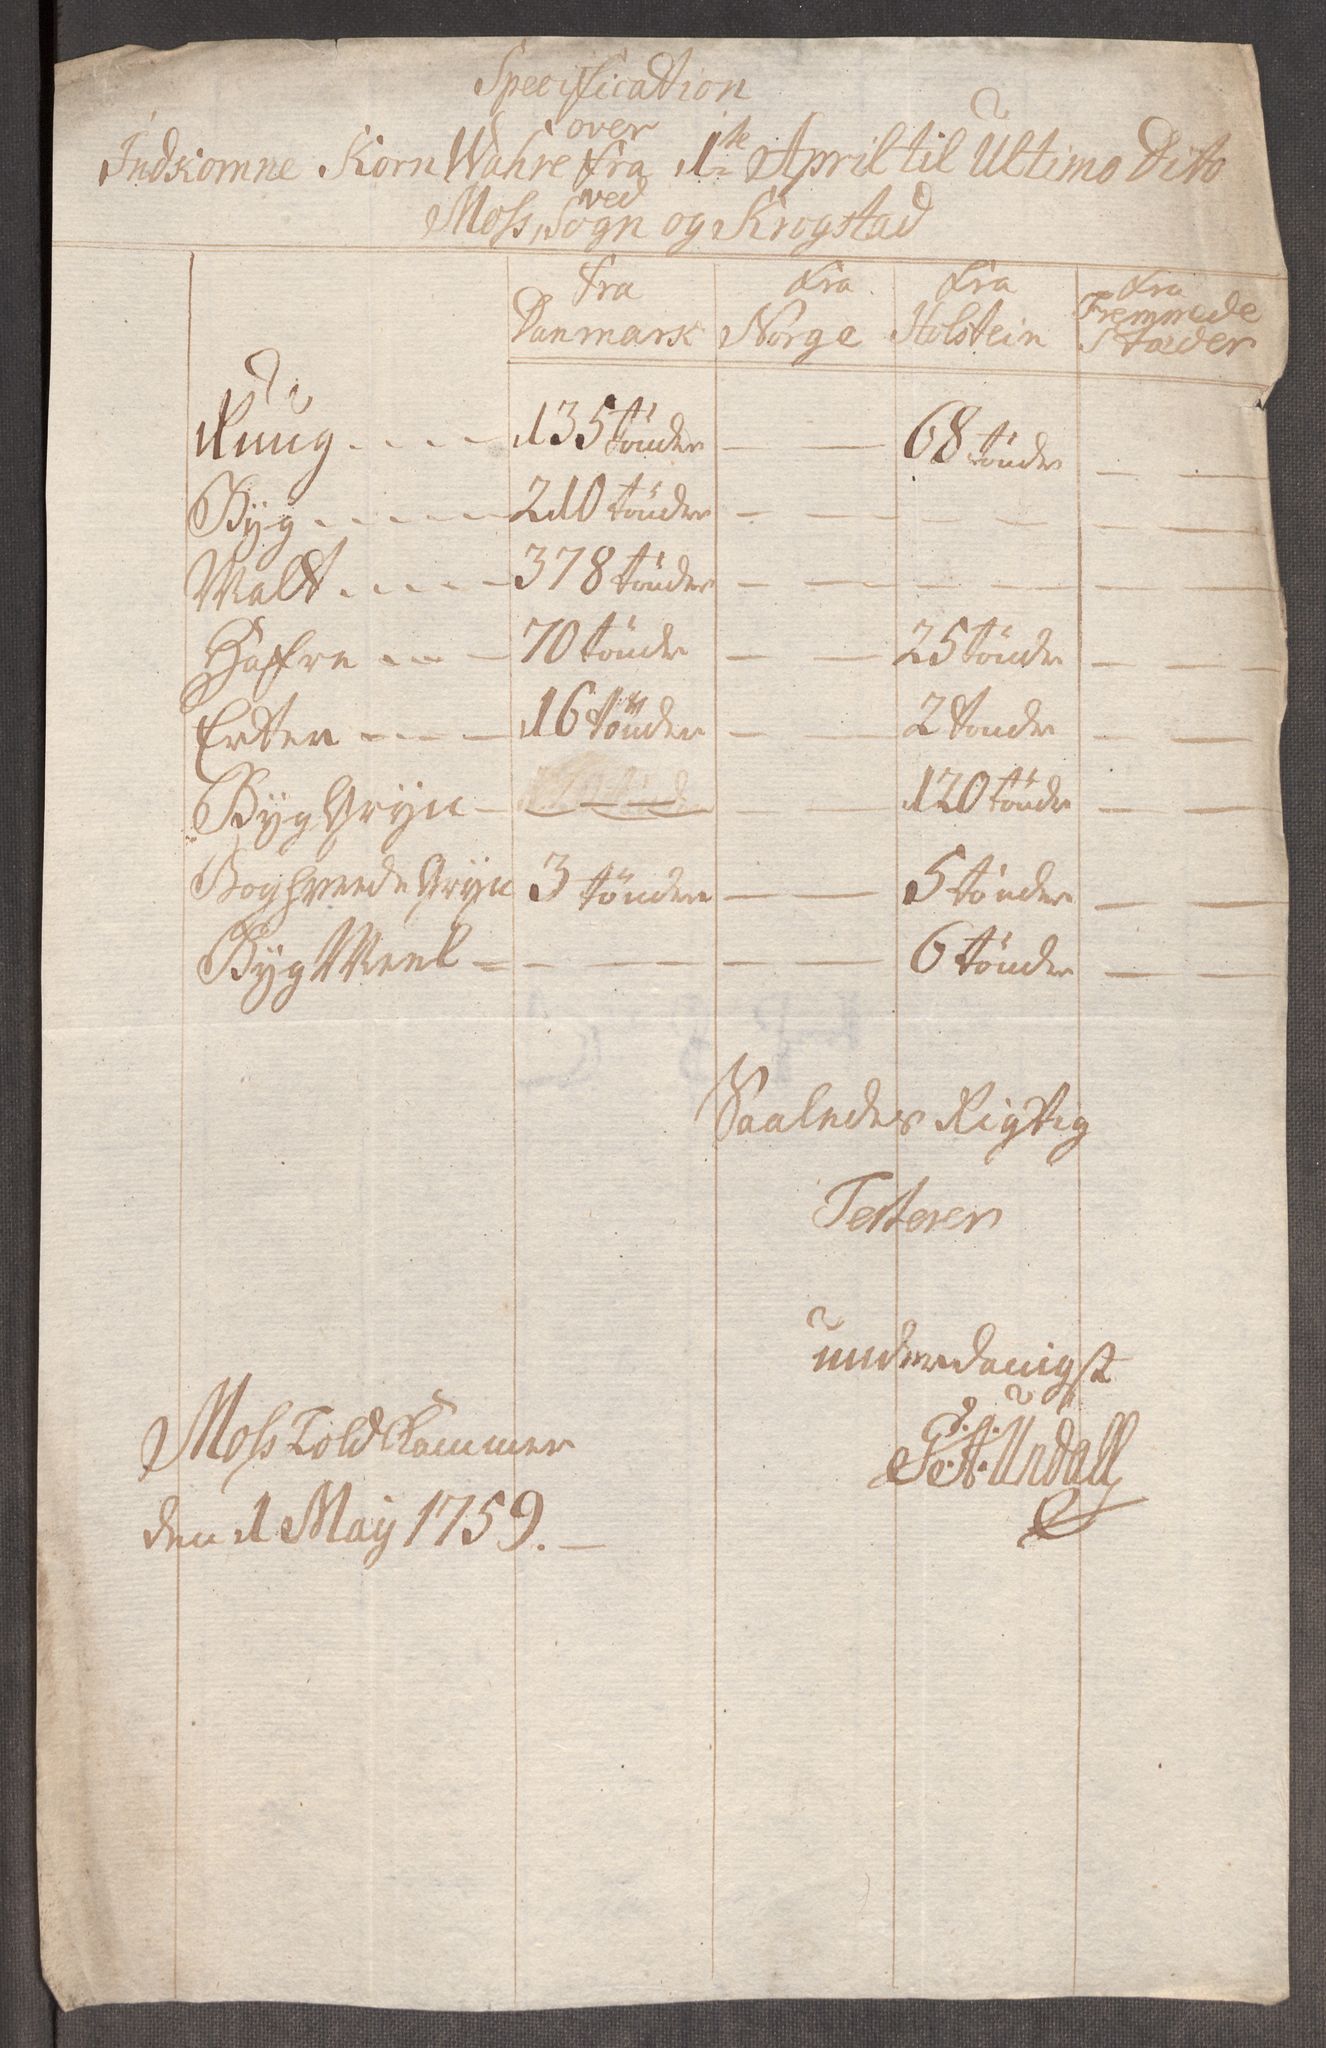 Specification
over
Indkomne Korn Wahre fra 1te April til Ultimo Dito
ved
Moss, Sogn og Krogstad
fra Danmark | fra Norge | fra Holstein | fra Fremmede Stæder
Ruug .... 135 tönder — — 68 tönder — —
Byg ..... 210 tönder — — — — — —
Malt .... 378 tönder — — — — — —
Haffre ... 70 tönder — — 25 tönder — —
Erter .... 16 tönder — — 2 tönder — —
Byg Gryn — — — 120 tönder — —
Boghvede Gryn 3 tönder — — 5 tönder — —
Byg Meel — — — — 6 tönder — —
Saaledes Rigtig
Testerer
underdanigst
Urdall
Moss Told Kammer
den 1 May 1759. —